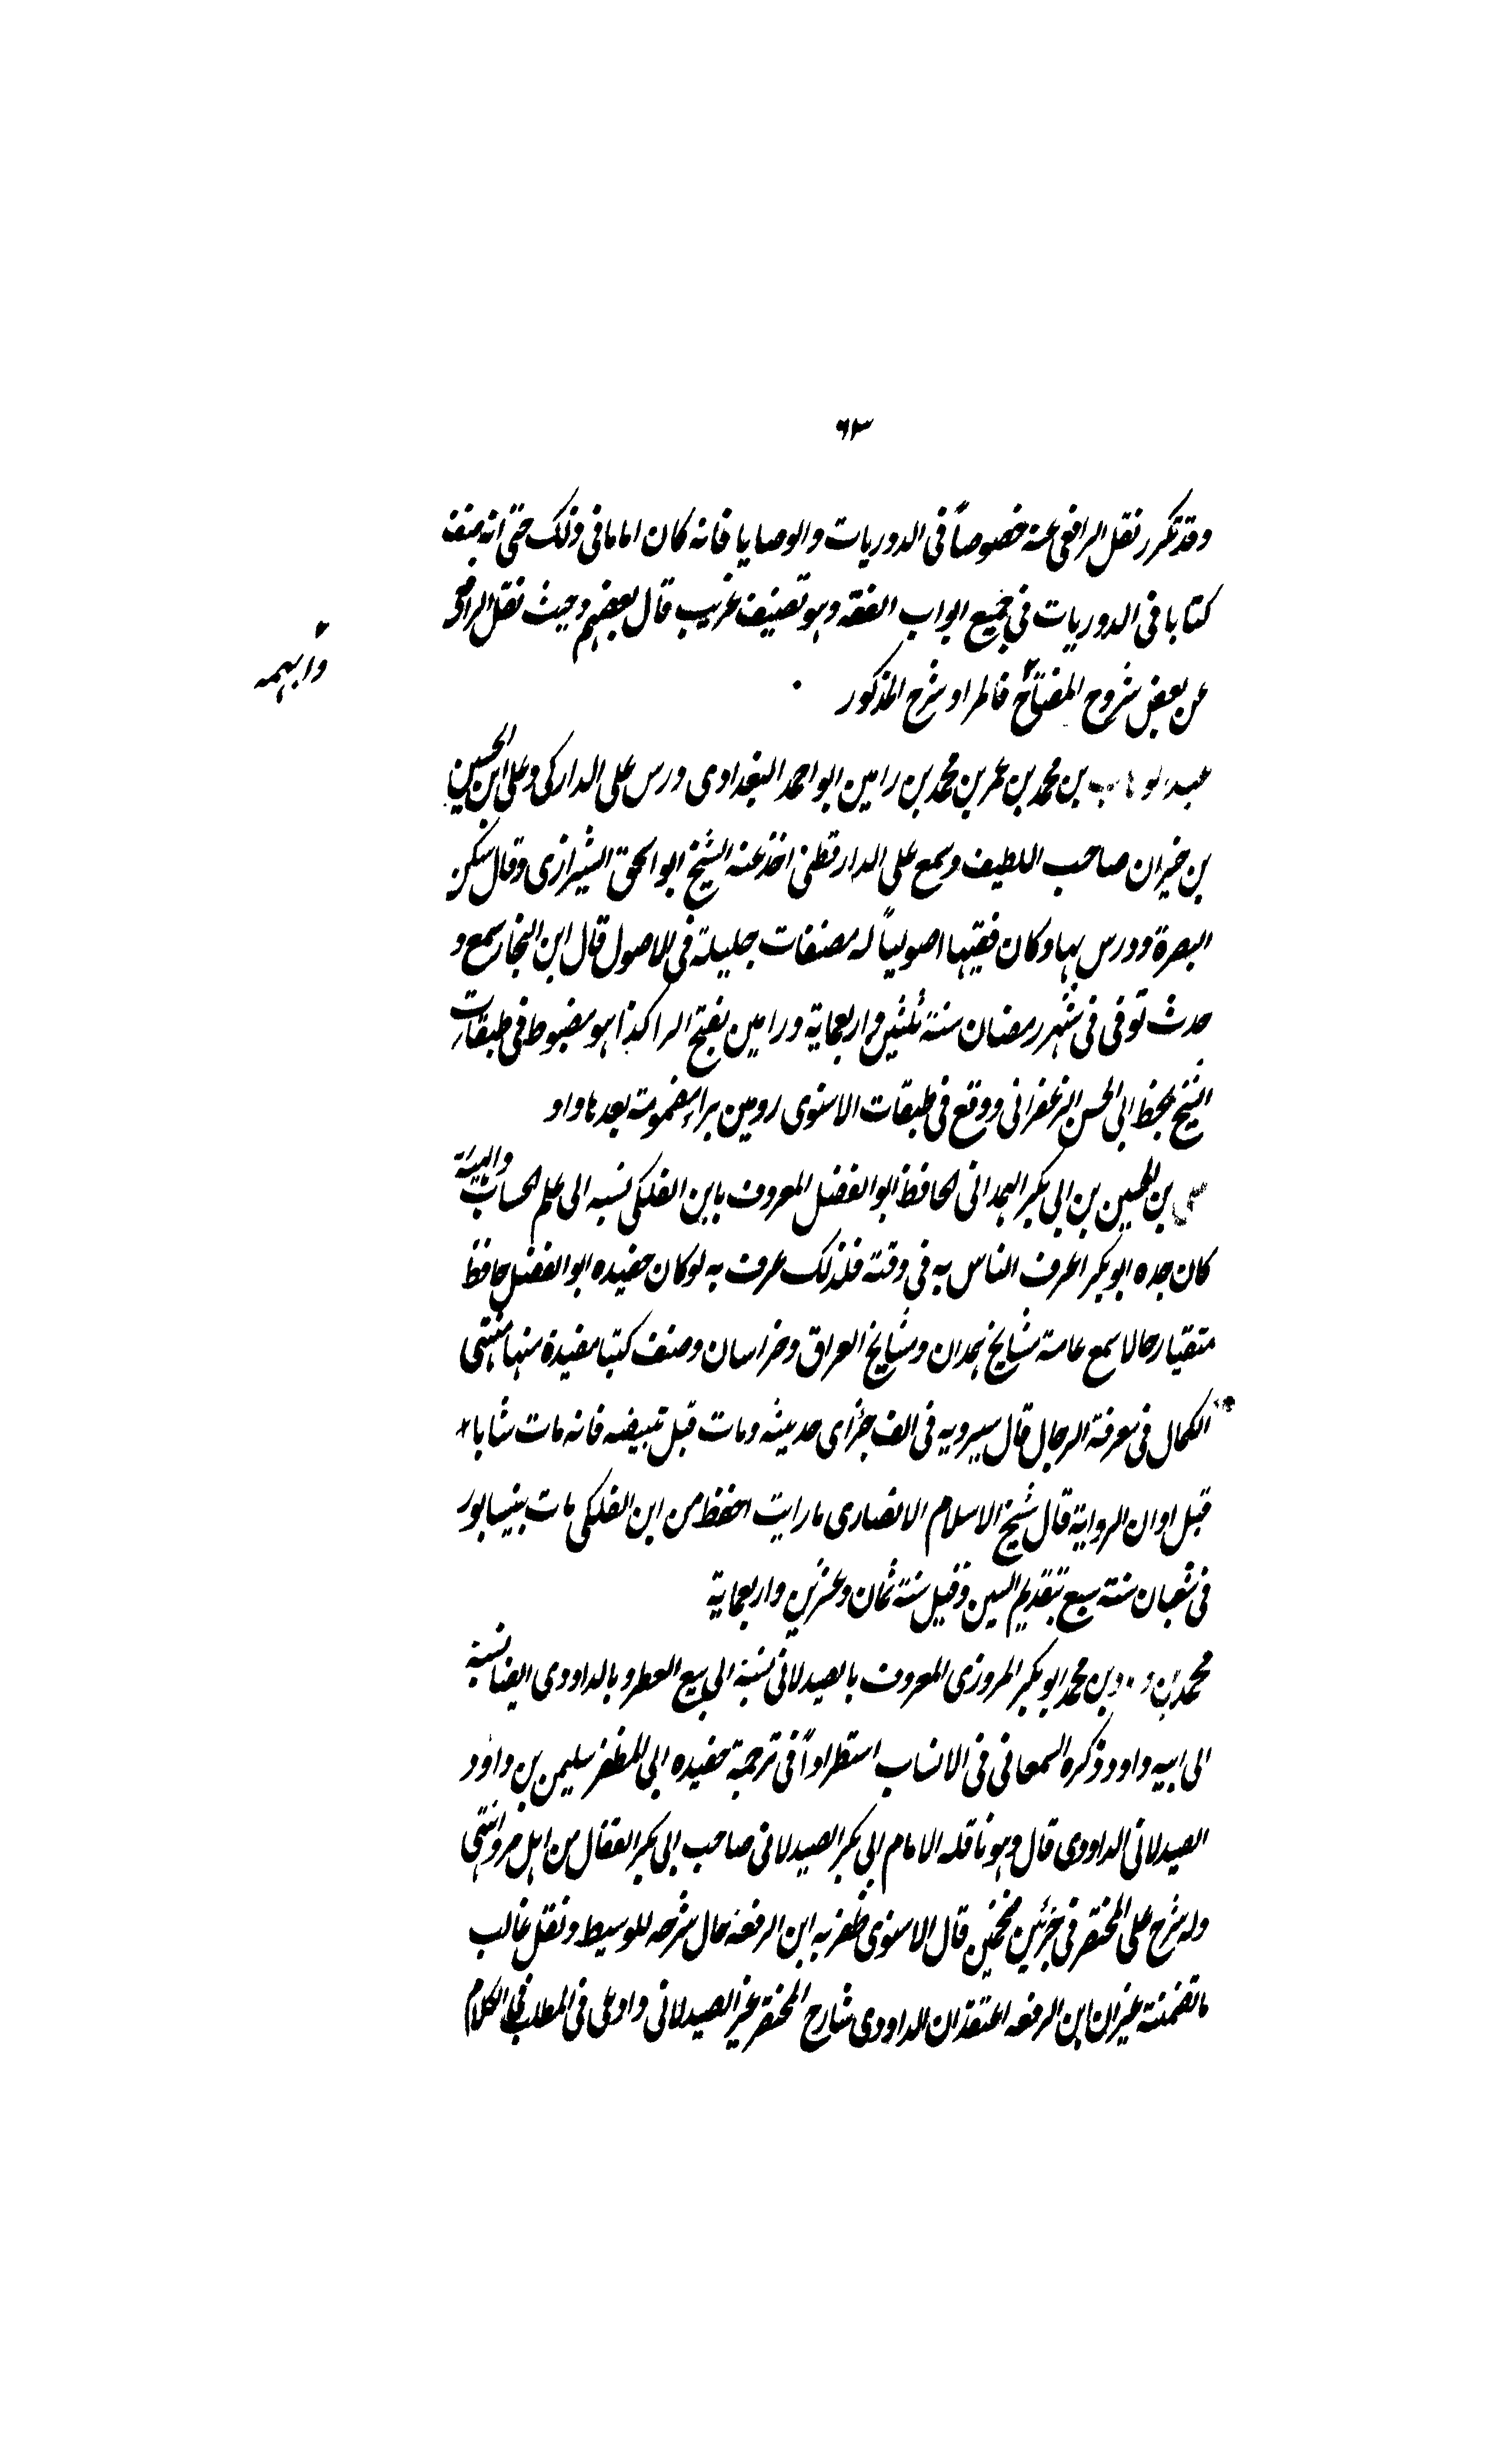 ٦٣
وقد تكرر نقل الرافعى عنه خصوصاً فى الدوريات والوصايا فانه كان اماما فى ذلك حتى انه صنف
كتابا فى الدوريات فى جميع ابواب الفقه وهو تصنيف غريب قال بعضهم وحيث نقل الرافعى
عن بعض شروح المفتاح فالمراد شرح المذكور
وابهمه
عبد الوهاب بن محمد بن عمر بن محمد بن رامين ابو احمد البغدادى درس على الداركى وعلى ابن الحسين
بن خيران صاحب اللطيف وسمع على الدارقطنى اخذ عنه الشيخ ابو اسحق الشيرازى وقال سكن
البصرة ودرس بها وكان فقيها اصولياً له مصنفات جليلة فى الاصول قال ابن النجار سمع و
حدث توفى فى شهر رمضان سنة ثلثين واربعماية ورامين بفتح الرا كذا هو مضبوط فى طبقات
الشيخ بخط ابى الحسن الزعفرانى ووقع فى طبقات الاسنوى رومين براء مضمومة بعدها واو
على بن الحسين بن ابى بكر الهمدانى الحافظ ابو الفضل المعروف بابن الفلكى نسبه الى علم الحساب والهيئة
كان جده ابو بكر اعرف الناس به فى وقته فلذلك عرف به وكان حفيده ابو الفضل حافظ
متقيا رحالا سمع عامة مشايخ همدان ومشايخ العراق وخراسان وصنف كتبا مفيدة منها منتهى
الكمال فى معرفة الرجال قال سيرويه فى الف جزء اى حديثه ومات قبل تبييضه فانه مات شابا
قبل اوان الرواية قال شيخ الاسلام الانصارى ما رايت احفظ من ابن الفلكى مات بنيسابور
فى شعبان سنة سبع بتقديم السين وقيل سنة ثمان وعشرين واربعماية
محمد بن داود بن محمد ابو بكر المروزى المعروف بالصيدلانى نسبة الى بيع العطر وبالداودى ايضا نسبة
الى ابيه داود ذكره السمعانى فى الانساب استطراداً فى ترجمة حفيده ابى المظفر سليمن بن داود
الصيدلانى الداودى قال وهو نافلة الامام ابى بكر الصيدلانى صاحب ابى بكر القفال من اهل مرو انتهى
وله شرح على المختصر فى جزئين ضخمين قال الاسنوى ظفر به ابن الرفعة حال شرحه للوسيط ونقل غالب
ما تضمنته غير ان ابن الرفعه اعتقد ان الداودى شارح المختصر غير الصيدلانى وادعى فى المطلب فى الكلام